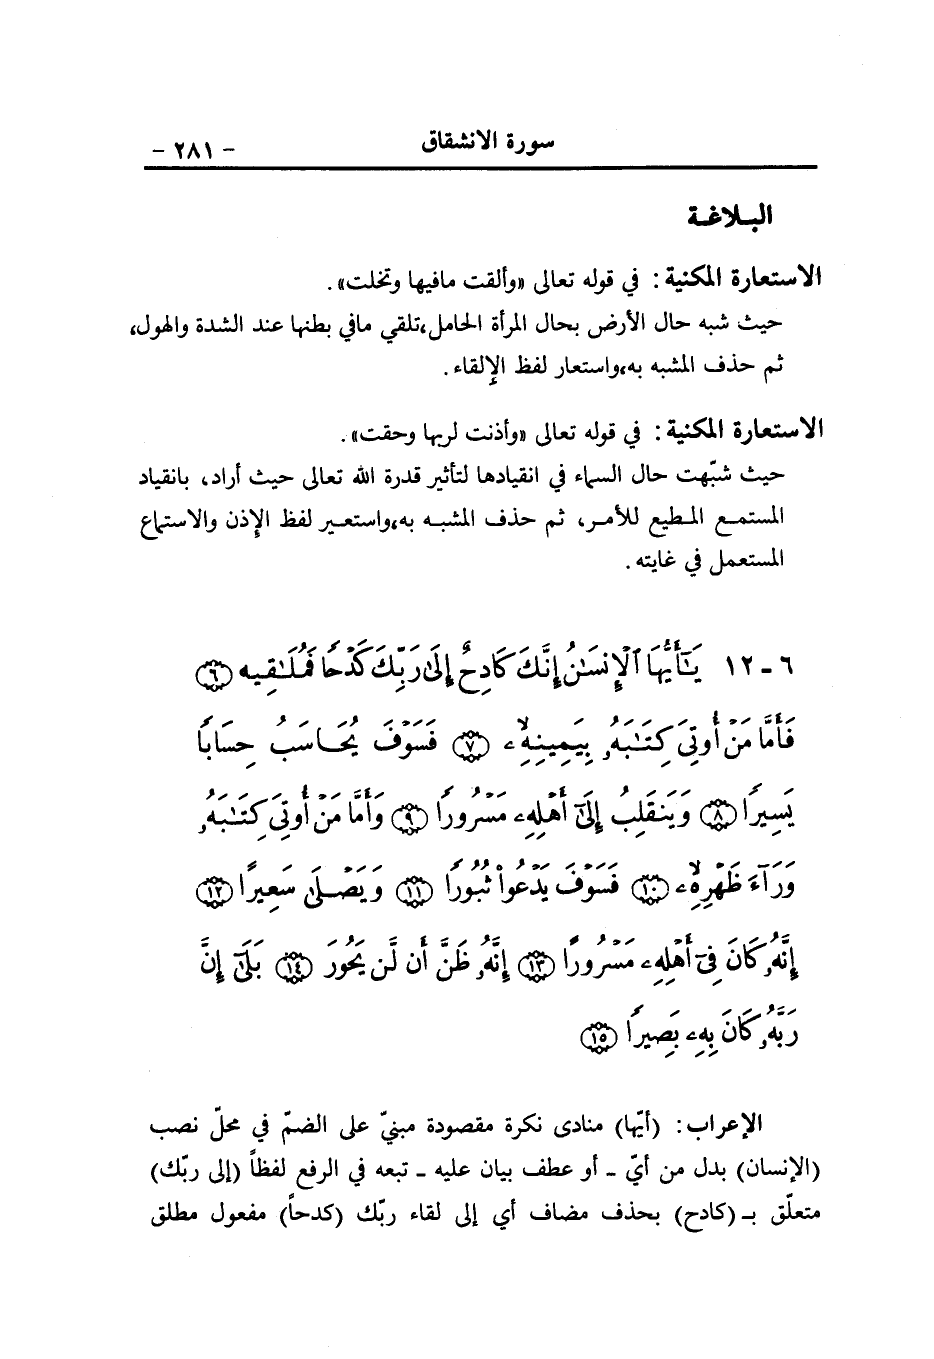 سورة الانشقاق - ٢٨١ -
البـلاغـة
الاستعارة المكنية : في قوله تعالى «وألقت مافيها وتخلت» .
حيث شبه حال الأرض بحال المرأة الحامل،تلقي مافي بطنها عند الشدة والهول،
ثم حذف المشبه به،واستعار لفظ الإلقاء .
الاستعارة المكنية : في قوله تعالى «وأذنت لربها وحقت» .
حيث شبّهت حال السماء في انقيادها لتأثير قدرة الله تعالى حيث أراد، بانقياد
المستمـع المـطيع للأمـر، ثم حذف المشبـه به،واستعـير لفظ الإذن والاستماع
المستعمل في غايته .
٦ - ١٢ يَـٰٓأَيُّهَا ٱلْإِنسَـٰنُ إِنَّكَ كَادِحٌ إِلَىٰ رَبِّكَ كَدْحًا فَمُلَـٰقِيهِ ﴿٦﴾
فَأَمَّا مَنْ أُوتِيَ كِتَـٰبَهُۥ بِيَمِينِهِۦ ﴿٧﴾ فَسَوْفَ يُحَاسَبُ حِسَابًا
يَسِيرًا ﴿٨﴾ وَيَنقَلِبُ إِلَىٰٓ أَهْلِهِۦ مَسْرُورًا ﴿٩﴾ وَأَمَّا مَنْ أُوتِيَ كِتَـٰبَهُۥ
وَرَآءَ ظَهْرِهِۦ ﴿١٠﴾ فَسَوْفَ يَدْعُوا۟ ثُبُورًا ﴿١١﴾ وَيَصْلَىٰ سَعِيرًا ﴿١٢﴾
إِنَّهُۥ كَانَ فِىٓ أَهْلِهِۦ مَسْرُورًا ﴿١٣﴾ إِنَّهُۥ ظَنَّ أَن لَّن يَحُورَ ﴿١٤﴾ بَلَىٰٓ إِنَّ
رَبَّهُۥ كَانَ بِهِۦ بَصِيرًا ﴿١٥﴾
الإعراب : (أيّها) منادى نكرة مقصودة مبنيّ على الضمّ في محلّ نصب
(الإنسان) بدل من أيّ ـ أو عطف بيان عليه ـ تبعه في الرفع لفظاً (إلى ربّك)
متعلّق بـ (كادح) بحذف مضاف أي إلى لقاء ربّك (كدحاً) مفعول مطلق